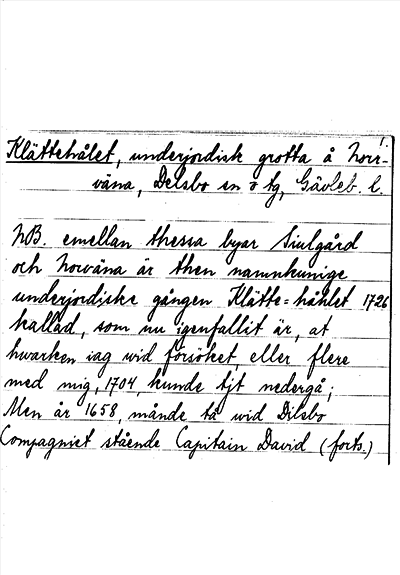 1.
Klättehålet, underjordisk grotta å Norr-
väna, Delsbo sn o tg, Gävleb. l.
NB. emellan thessa byar Siulgård
och Norväna är then namnkunige
underjordiske gången Klätte=håhlet 1726
kallad, som nu igenfallit är, at
hwarken iag wid försöket, eller flere
med mig, 1704, kunde tjt nedergå;
Men år 1658, månde tå wid Dilsbo
Compagniet stående Capitain David (forts.)